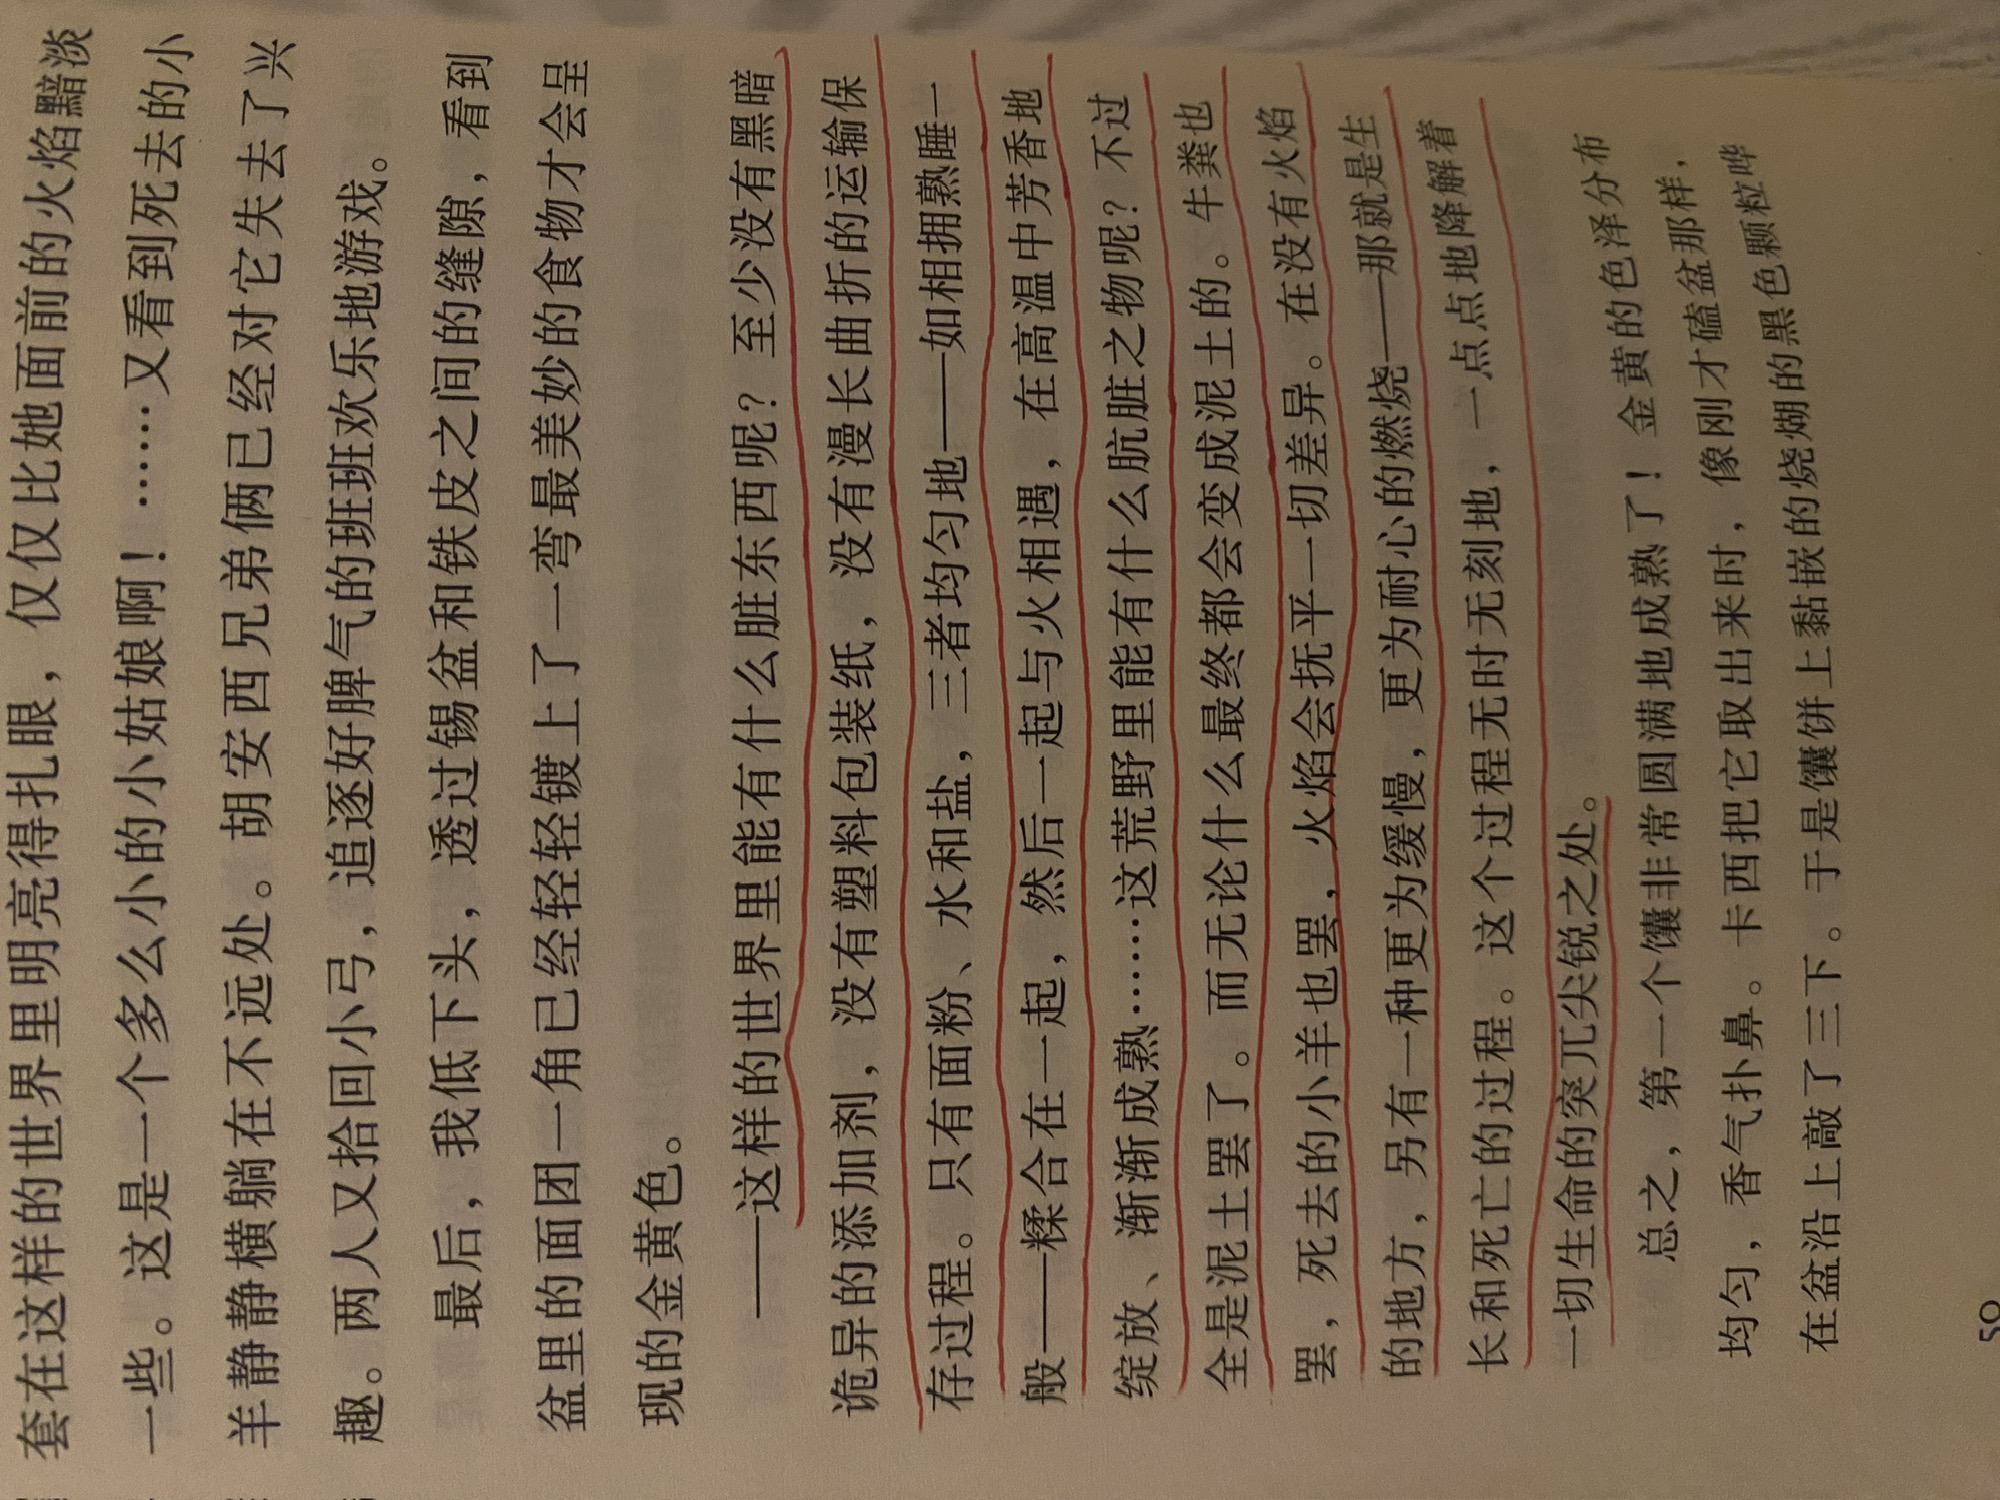 套在这样的世界里明亮得扎眼，仅仅比她面前的火焰黯淡
一些。这是一个多么小的小姑娘啊！……又看到死去的小
羊静静横躺在不远处。胡安西兄弟俩已经对它失去了兴
趣。两人又拾回小弓，追逐好脾气的班班欢乐地游戏。
最后，我低下头，透过锡盆和铁皮之间的缝隙，看到
盆里的面团一角已经轻轻镀上了一弯最美妙的食物才会呈
现的金黄色。
——这样的世界里能有什么脏东西呢？至少没有黑暗
诡异的添加剂，没有塑料包装纸，没有漫长曲折的运输保
存过程。只有面粉、水和盐，三者均匀地——如相拥熟睡一
般——糅合在一起，然后一起与火相遇，在高温中芳香地
绽放、渐渐成熟……这荒野里能有什么肮脏之物呢？不过
全是泥土罢了。而无论什么最终都会变成泥土的。牛粪也
罢，死去的小羊也罢，火焰会抚平一切差异。在没有火焰
的地方，另有一种更为缓慢，更为耐心的燃烧——那就是生
长和死亡的过程。这个过程无时无刻地，一点点地降解着
一切生命的突兀尖锐之处。
总之，第一个馕非常圆满地成熟了！金黄的色泽分布
均匀，香气扑鼻。卡西把它取出来时，像刚才磕盆那样，
在盆沿上敲了三下。于是馕饼上黏嵌的烧煳的黑色颗粒哗
50